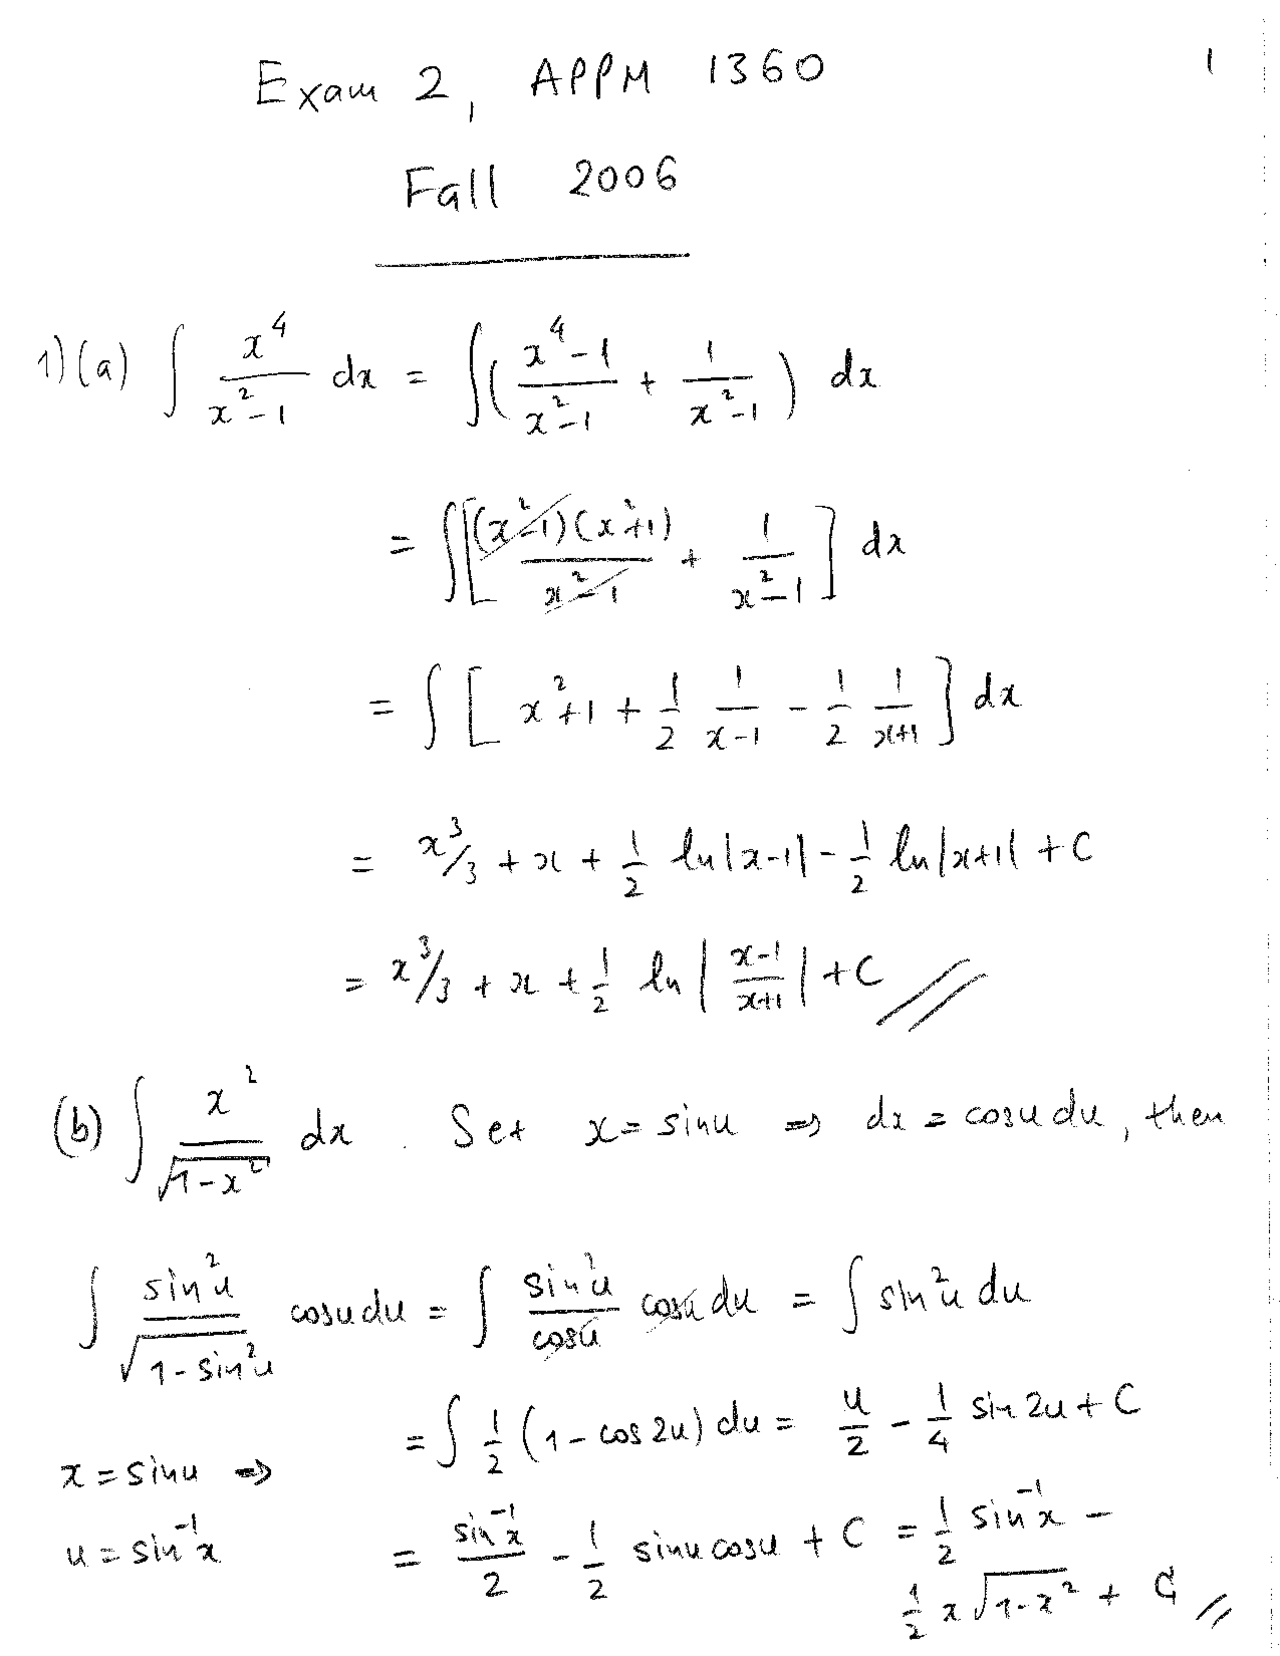 Exam 2, APPM 1360
1
Fall 2006
1)(a) ∫ x⁴/(x²-1) dx = ∫((x⁴-1)/(x²-1) + 1/(x²-1)) dx
= ∫[(x²-1)(x²+1)/(x²-1) + 1/(x²-1)] dx
= ∫[x²+1 + 1/2 1/(x-1) - 1/2 1/(x+1)] dx
= x³/3 + x + 1/2 ln|x-1| - 1/2 ln|x+1| + C
= x³/3 + x + 1/2 ln|(x-1)/(x+1)| + C //
(b) ∫ x²/√(1-x²) dx . Set x = sinu => dx = cosu du, then
∫ sin²u/√(1-sin²u) cosu du = ∫ sin²u/cosu cosu du = ∫ sin²u du
= ∫ 1/2 (1-cos2u) du = u/2 - 1/4 sin2u + C
x = sinu =>
u = sin⁻¹x
= sin⁻¹x/2 - 1/2 sinu cosu + C = 1/2 sin⁻¹x -
1/2 x√(1-x²) + C //